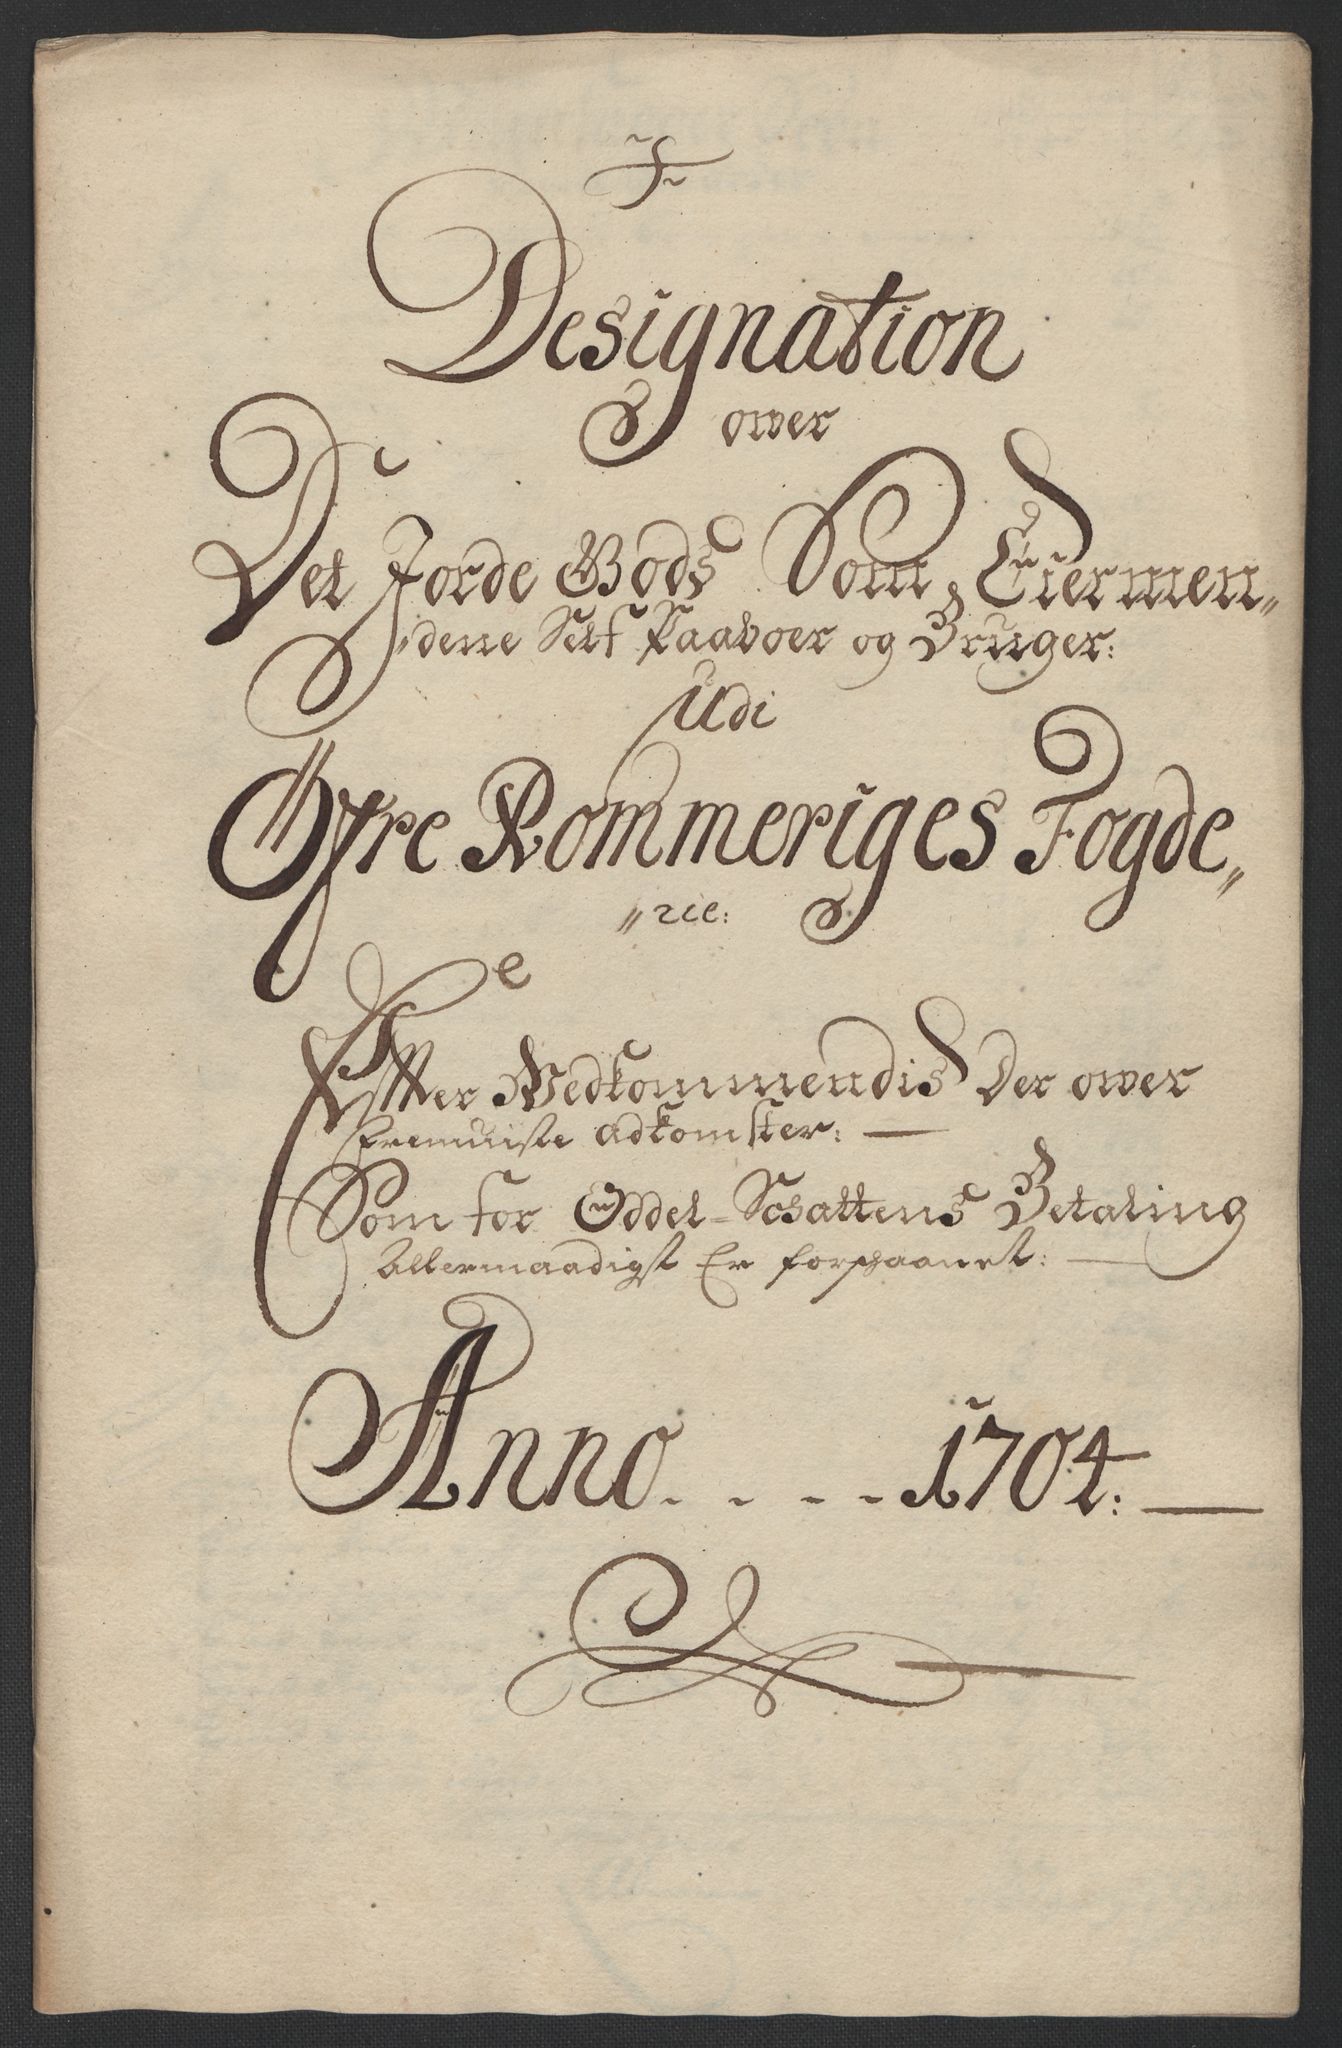 Designation
ower
Det Jorde Gods Som Eiermen„
„dene Self Paaboer og Bruger:
Udi
Øfre Rommeriges Fogde„
„rie:
Efter Vedkommendis Der ower
Fremviste adkomster: —
Som for Oddel-Schattens Betaling
Allernaadigst Er forschaanet: —
Anno . . . . 1704: —